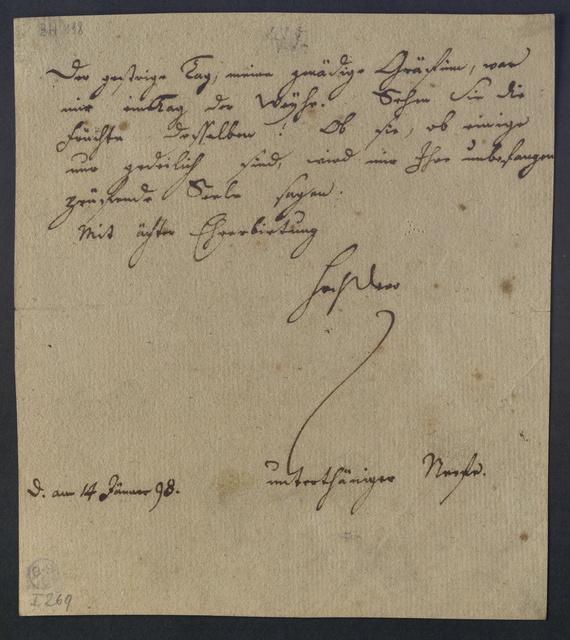 BH 138
Der gestrige Tag, meine gnädige Gräfinn, war
mir ein Tag der Weyhe. Sehen Sie die
Früchte desselben! Ob sie, ob einige
nur gedeilich sind, wird mir Ihre unbefangen
prüfende Seele sagen.
Mit ächter Ehrerbietung
unterthäniger Neefe.
D. am 14 Jänner 98.
I 269